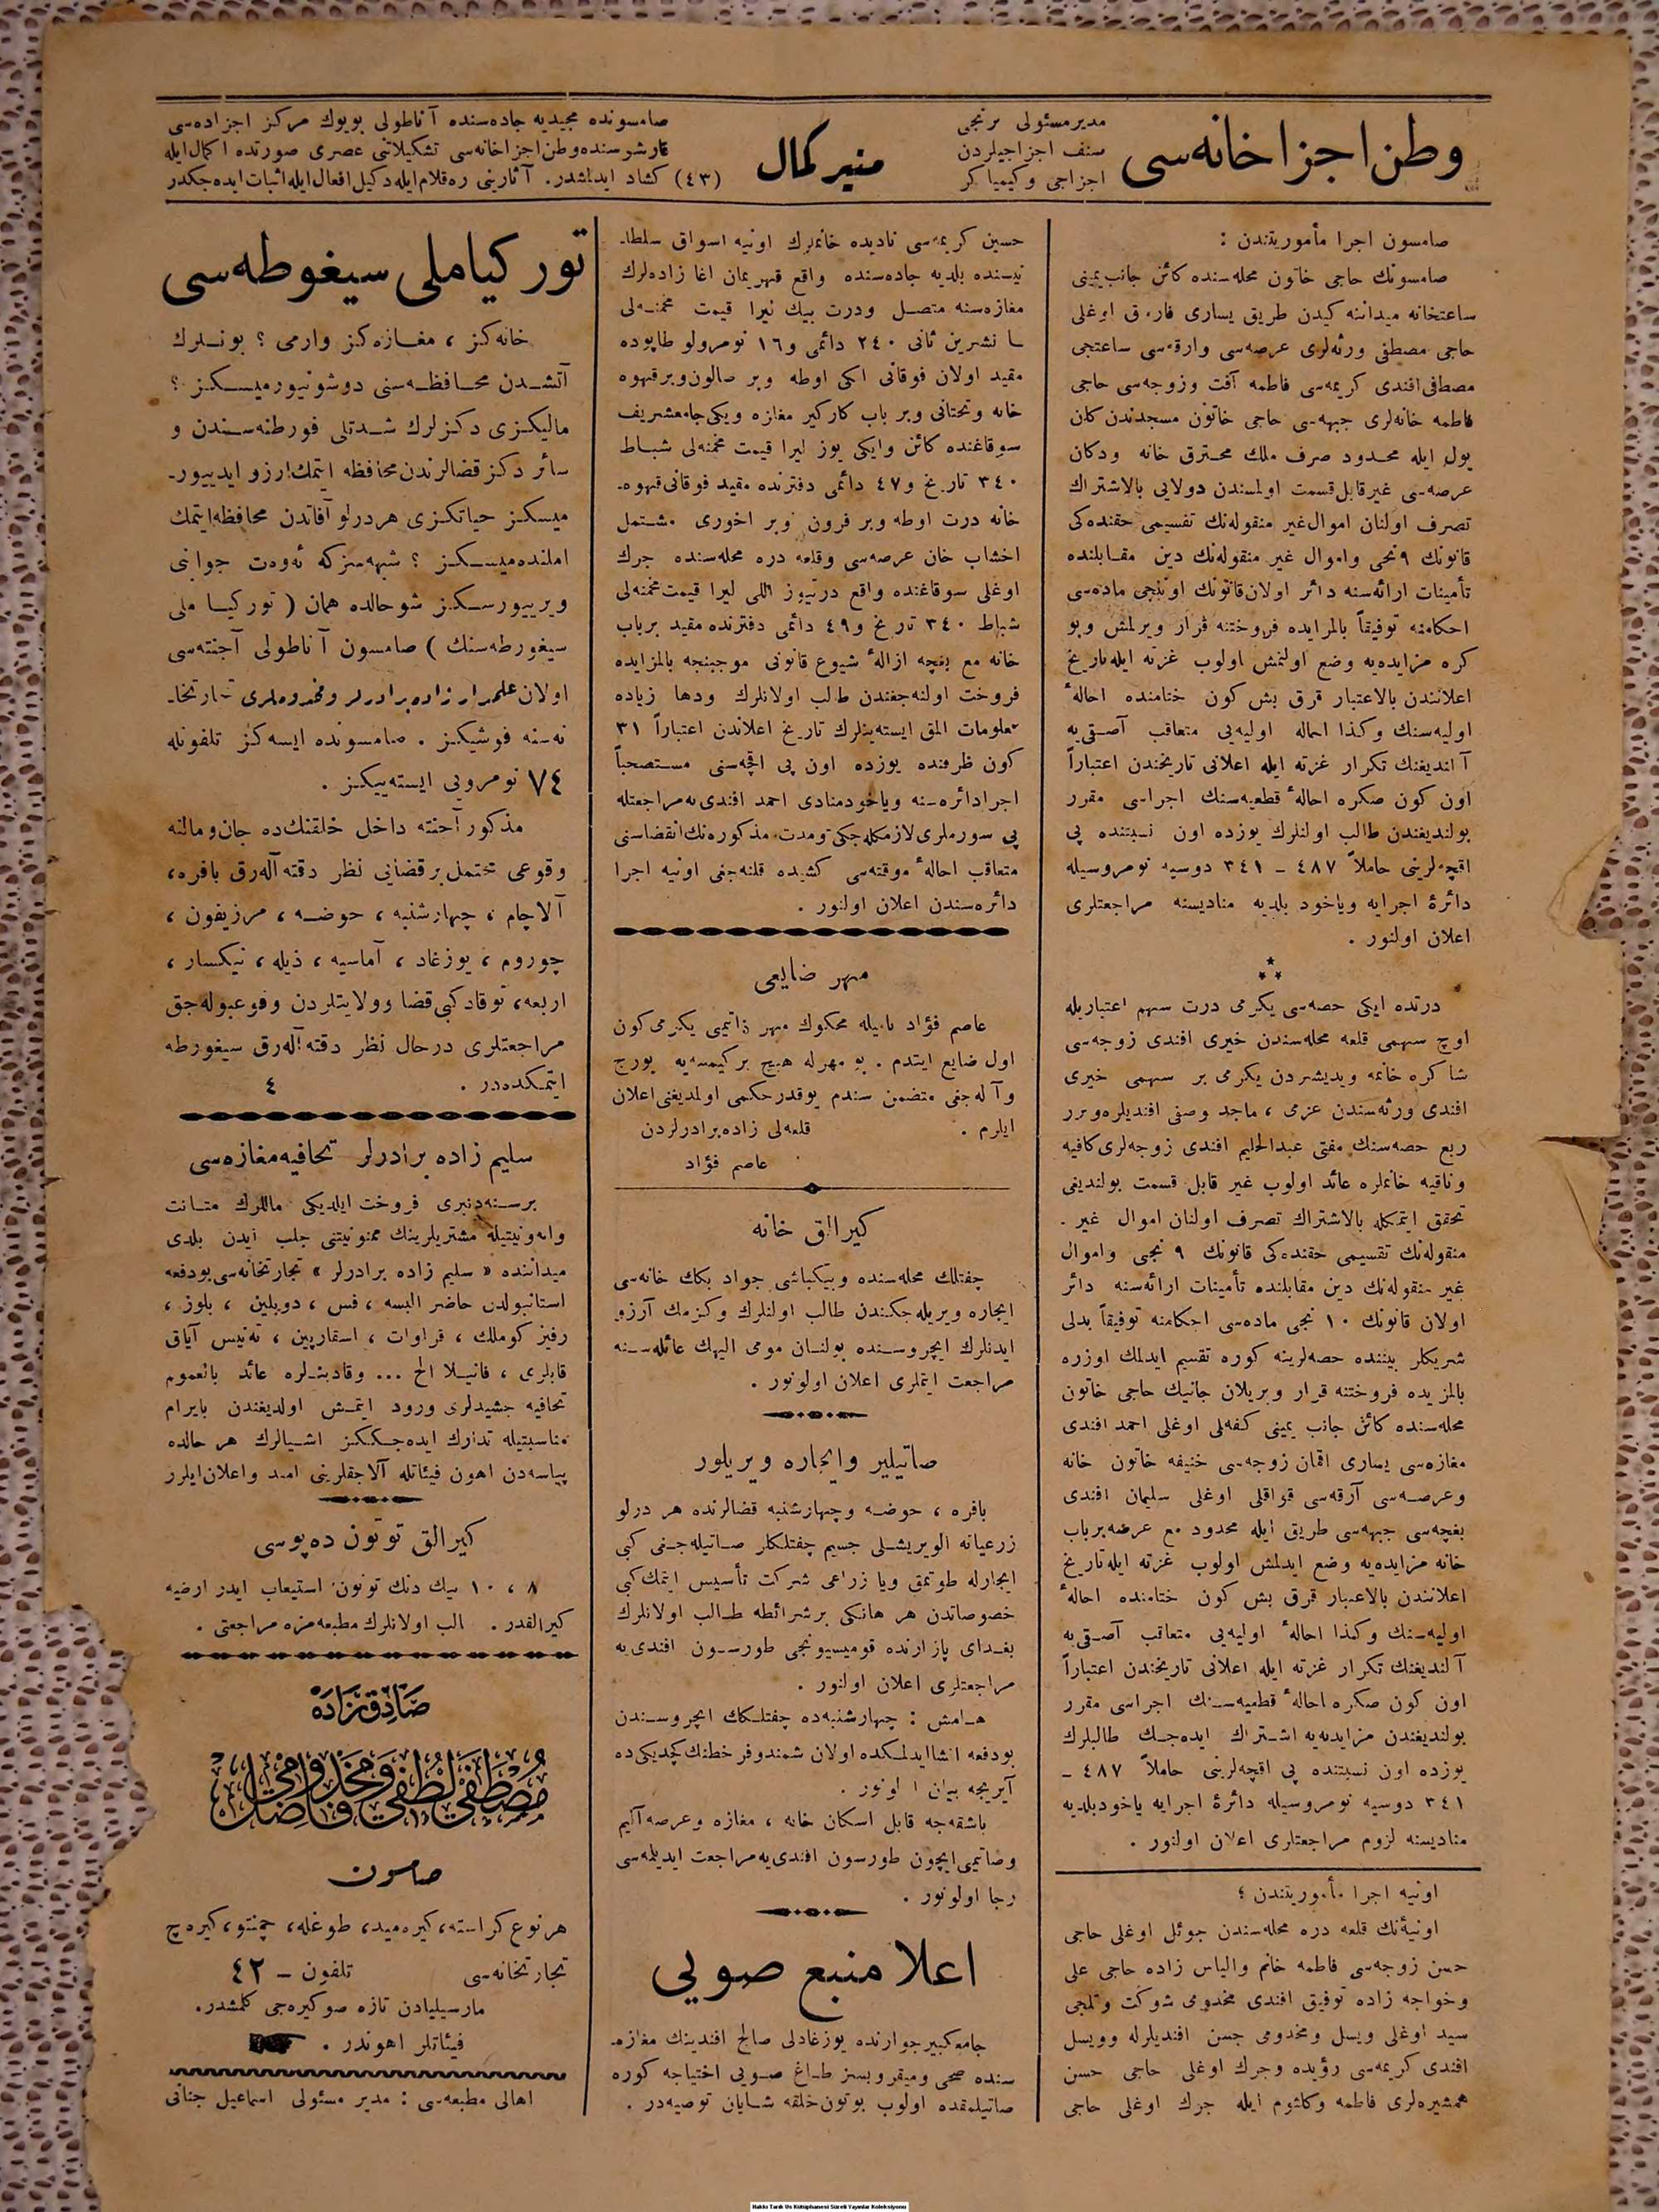 وطن اجزاخانه‌سی
مدیر مسئولی برنجی
صنف اجزاجیلردن
اجزاجی و کیمیاکر
منیر کمال
صامسونده مجیدیه جاده‌سنده آناطولی بویوك مركز اجزاده‌سی
قارشوسنده وطن اجزاخانه‌سی تشکیلاتنی عصری صورتده اکمال ایله
کشاد ایدلشدر. آثارینی ره‌قلام ایله دکیل افعال ایله اثبات ایده‌جکدر (٤٣)
صامسون اجرا مأموریتندن :
صامسونك حاجی خاتون محله‌سنده کائن جانب یمینی
ساعتخانه میداننه کیدن طریق یساری فاروق اوغلی
حاجی مصطفی ورثه‌لری عرصه‌سی وارقه‌سی ساعتجی
مصطفی افندی کریمه‌سی فاطمه آفت و زوجه‌سی حاجی
فاطمه خانه‌لری جبهه‌سی حاجی خاتون مسجدندن کلن
یول ایله محدود صرف ملك محترق خانه ودکان
عرصه‌سی غیر قابل قسمت اولمسندن دولایی بالاشتراك
تصرف اولنان اموال غیر منقوله‌نك تقسیمی حقنده‌کی
قانونك ٩ نجی واموال غیر منقوله‌نك دین مقابلنده
تأمینات ارائه‌سنه دائر اولان قانونك اوننجی ماده‌سی
احکامنه توفیقاً بالمزایده فروختنه قرار ویرلمش وبو
کره مزایده‌یه وضع اولنمش اولوب غزته ایله تاریخ
اعلانندن بالاعتبار قرق بش کون ختامنده احالهٔ
اولیه‌سنك وکذا احاله اولیه‌یی متعاقب آصقی‌یه
آلندیغنك تکرار غزته ایله اعلانی تاریخندن اعتباراً
اون کون صکره احالهٔ قطعیه‌سنك اجراسی مقرر
بولندیغندن طالب اولنلرك یوزده اون نسبتنده پی
اقچه‌لرینی حاملاً ٤٨٧ ــ ٣٤١ دوسیه نومروسیله
دائرهٔ اجرایه ویاخود بلدیه منادیسنه مراجعتلری
اعلان اولنور .
درتده ایکی حصه‌سی یکرمی درت سهم اعتباریله
اوچ سهمی قلعه محله‌سندن خیری افندی زوجه‌سی
شاکره خانمه ویدیشردن یکرمی بر سهمی خیری
افندی ورثه‌سندن عزمی ، ماجد وصفی افندیلره وبرر
ربع حصه‌سنك مفتی عبدالحلیم افندی زوجه‌لری کافیه
وناقیه خانملره عائد اولوب غیر قابل قسمت بولندیغی
تحقق ایتمکله بالاشتراك تصرف اولنان اموال غیر .
منقوله‌نك تقسیمی حقنده‌کی قانونك ٩ نجی واموال
غیر منقوله‌نك دین مقابلنده تأمینات ارائه‌سنه دائر
اولان قانونك ١٠ نجی ماده‌سی احکامنه توفیقاً بدلی
شریکلر بیننده حصه‌لرینه کوره تقسیم ایدلمك اوزره
بالمزایده فروختنه قرار ویریلان جانیك حاجی خاتون
محله‌سنده کائن جانب یمینی کفه‌لی اوغلی احمد افندی
مغازه‌سی یساری اقمان زوجه‌سی حنیفه خاتون خانه
وعرصه‌سی آرقه‌سی قواقلی اوغلی سلیمان افندی
بغچه‌سی جبهه‌سی طریق ایله محدود مع عرصه بر باب
خانه مزایده‌یه وضع ایدلمش اولوب غزته ایله تاریخ
اعلانندن بالاعتبار قرق بش کون ختامنده احالهٔ
اولیه‌سنك وکذا احالهٔ اولیه‌یی متعاقب آصقی‌یه
آلندیغنك تکرار غزته ایله اعلانی تاریخندن اعتباراً
اون کون صکره احالهٔ قطعیه‌سنك اجراسی مقرر
بولندیغندن مزایده‌یه اشتراك ایده‌جك طالبلرك
یوزده اون نسبتنده پی اقچه‌لرینی حاملاً ٤٨٧ ــ
٣٤١ دوسیه نومروسیله دائرهٔ اجرایه یاخود بلدیه
منادیسنه لزوم مراجعتلری اعلان اولنور .
اونیه اجرا مأموریتندن ؛
اونیه‌نك قلعه دره محله‌سندن جوئل اوغلی حاجی
حسن زوجه‌سی فاطمه خانم والیاس زاده حاجی علی
وخواجه زاده توفیق افندی مخدومی شوکت وتلمجی
سید اوغلی ویسل ومخدومی حسن افندیلرله وویسل
افندی کریمه‌سی رؤیده وجرك اوغلی حاجی حسن
همشیره‌لری فاطمه وکلثوم ایله جرك اوغلی حاجی
حسین کریمه‌سی نادیده خانملرك اونیه اسواق سلطا-
نیه‌سنده بلدیه جاده‌سنده واقع قهریمان اغا زاده‌لرك
مغازه‌سنه متصل ودرت بیك لیرا قیمت مخمنه‌لی
تشرین ثانی ٢٤٠ دائمی و١٦ نومرولو طاپوده
مقید اولان فوقانی ایکی اوطه وبر صالون وبر قهوه
خانه وتحتانی وبر باب کارکیر مغازه ویکی جامع شریف
سوقاغنده کائن وایکی یوز لیرا قیمت مخمنه‌لی شباط
٣٤٠ تاریخ و٤٧ دائمی دفترنده مقید فوقانی قهوه-
خانه درت اوطه وبر فرون وبر اخوری مشتمل
اخشاب خان عرصه‌سی وقلعه دره محله‌سنده جرك
اوغلی سوقاغنده واقع درتیوز اللی لیرا قیمت مخمنه‌لی
شباط ٣٤٠ تاریخ و٤٩ دائمی دفترنده مقید بر باب
خانه مع بغچه ازالهٔ شیوع قانونی موجبنجه بالمزایده
فروخت اولنه‌جغندن طالب اولانلرك ودها زیاده
معلومات المق ایسته‌ینلرك تاریخ اعلاندن اعتباراً ٣١
کون ظرفنده یوزده اون پی اقچه‌سنی مستصحباً
اجرا دائره‌سنه ویاخود منادی احمد افندی‌یه مراجعتله
پی سورملری لازمکله‌جکی ومدت مذکوره‌نك انقضاسنی
متعاقب احالهٔ موقته‌سی کشیده قلنه‌جغی اونیه اجرا
دائره‌سندن اعلان اولنور .
مهر ضایعی
عاصم فؤاد نامیله محکوك مهر ذاتیمی یکرمی کون
اول ضایع ایتدم . بو مهرله هیچ بر کیمسه‌یه بورج
وآله‌جغی متضمن سندم یوقدر حکمی اولمدیغنی اعلان
ایلرم . قلعه‌لی زاده برادرلردن
عاصم فؤاد
کیرالق خانه
چفتلك محله‌سنده وبیکباشی جواد بکك خانه‌سی
ایجاره ویریله‌جکندن طالب اولنلرك وکزمك آرزو
ایدنلرك ایچروسنده بولنان مومی الیهك عائله‌سنه
مراجعت ایتملری اعلان اولونور .
صاتیلیر وایجاره ویریلور
بافره ، حوضه وچهارشنبه قضالرنده هر درلو
زرعیاته الویریشلی جسیم چفتلکلر صاتیله‌جغی کبی
ایجارله طوتمق ویا زراعی شرکت تأسیس ایتمك کبی
خصوصاتدن هر هانکی بر شرائطه طالب اولانلرك
بغدای پازارنده قومیسیونجی طورسون افندی‌یه
مراجعتلری اعلان اولنور .
هامش : چهارشنبه‌ده چفتلکك ایچروسندن
بودفعه انشا ایدلمکده اولان شمندوفر خطنك کچدیکی ده
آیریجه بیان اولونور .
باشقه‌جه قابل اسکان خانه ، مغازه وعرصه آلیم
وصاتیمی ایچون طورسون افندی‌یه مراجعت ایدیلمه‌سی
رجا اولونور .
اعلا منبع صویی
جامع کبیر جوارنده یوزغادلی صالح افندینك مغازه-
سنده صحی ومیقروبسز طاغ صویی احتیاجه کوره
صاتیلمقده اولوب بوتون خلقه شایان توصیه‌در .
تورکیا ملی سیغورطه‌سی
خانه‌کز ، مغازه‌کز وارمی ؟ بونلرك
آتشدن محافظه‌سنی دوشونیورمیسکز ؟
مالیکزی دکزلرك شدتلی فورطنه‌سندن و
سائر دکز قضالرندن محافظه ایتمك ارزو ایدییور-
میسکز حیاتکزی هر درلو آفاتدن محافظه ایتمك
املنده‌میسکز ؟ شبهه‌سزکه ئه‌وه‌ت جوابنی
ویرییورسکز شو حالده همان ( تورکیا ملی
سیغورطه‌سنك ) صامسون آناطولی آجنته‌سی
اولان علمدار زاده برادرلر ومخدوملری تجارتخا-
نه‌سنه قوشیکز . صامسونده ایسه‌کز تلفونله
٧٤ نومرویی ایسته‌ییکز .
مذکور آجنته داخل خلقنك ده جان ومالنه
وقوعی محتمل بر قضایی نظر دقته آله‌رق بافره ،
آلاچام ، چهارشنبه ، حوضه ، مرزیفون ،
چوروم ، یوزغاد ، آماسیه ، ذیله ، نیکسار ،
اربعه ، توقاد کبی قضا وولایتلردن وقوعبوله‌جق
مراجعتلری درحال نظر دقته آله‌رق سیغورطه
ایتمکده‌در . ٤
سلیم زاده برادرلر تحافیه مغازه‌سی
برسنه‌دنبری فروخت ایلدیکی ماللرك متانت
واهونیتیله مشتریلرینك ممنونیتنی جلب ایدن بلدی
میداننده « سلیم زاده برادرلر » تجارتخانه‌سی بودفعه
استانبولدن حاضر البسه ، فس ، دوبلین ، بلوز ،
رفیز کوملك ، قراوات ، اسقارپین ، ته‌نیس آیاق
قابلری ، فانیلا الخ ... وقادینلره عائد بالعموم
تحافیه چشیدلری ورود ایتمش اولدیغندن بایرام
مناسبتیله تدارك ایده‌جککز اشیالرك هر حالده
پیاسه‌دن اهون فیئاتله آلاجقلرینی امید واعلان ایلرر
کیرالق توتون ده‌پوسی
٨ ، ١٠ بیك دنك توتون استیعاب ایدر ارضیه
کیرالقدر . طالب اولانلرك مطبعه‌مزه مراجعتی .
صادق زاده
مصطفی لطفی ومخدوملری فاضل
صامسون
هر نوع کراسته ، کیره‌مید ، طوغله ، چمنتو ، کیره‌ج
تجارتخانه‌سی تلفون ــ ٤٢
مارسیلیادن تازه صو کیره‌جی کلمشدر.
فیئاتلر اهوندر .
اهالی مطبعه‌سی : مدیر مسئولی اسماعیل جنانی
Hakkı Tarık Us Kütüphanesi Süreli Yayınlar Koleksiyonu